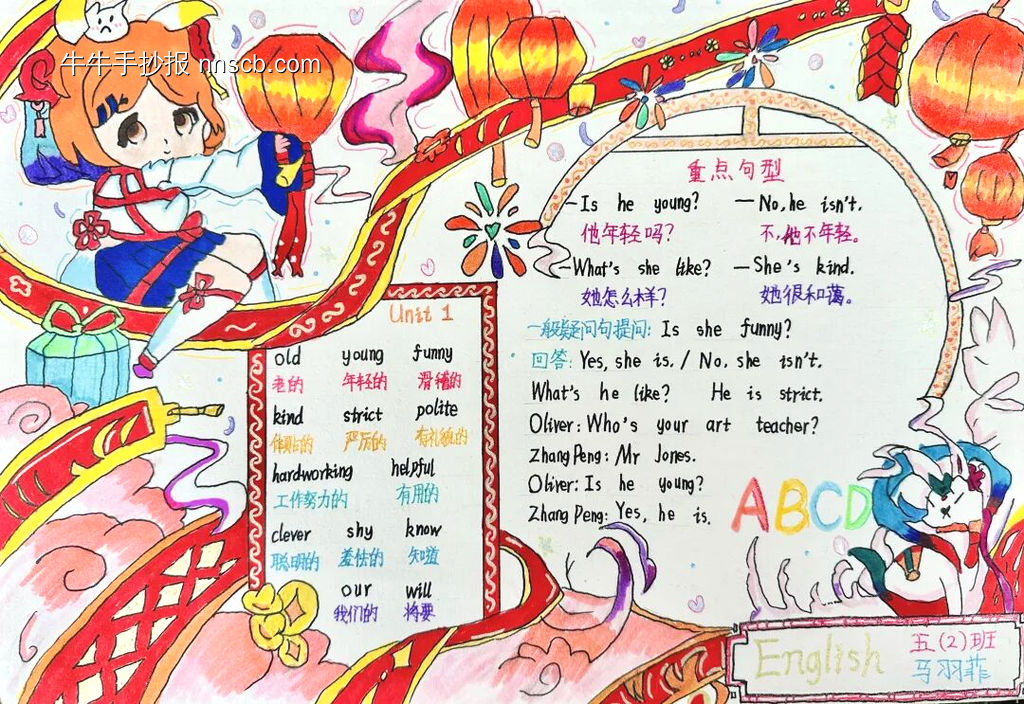 牛牛手抄报 nnscb.com
Unit 1
old young funny
老的 年轻的 滑稽的
kind strict polite
体贴的 严厉的 有礼貌的
hardworking helpful
工作努力的 有用的
clever shy know
聪明的 羞怯的 知道
our will
我们的 将要
重点句型
—Is he young? —No, he isn't.
他年轻吗? 不,他不年轻。
—What's she like? —She's kind.
她怎么样? 她很和蔼。
一般疑问句提问: Is she funny?
回答: Yes, she is. / No, she isn't.
What's he like? He is strict.
Oliver: Who's your art teacher?
Zhang Peng: Mr Jones.
Oliver: Is he young?
Zhang Peng: Yes, he is.
ABCD
English
五(2)班
马羽菲